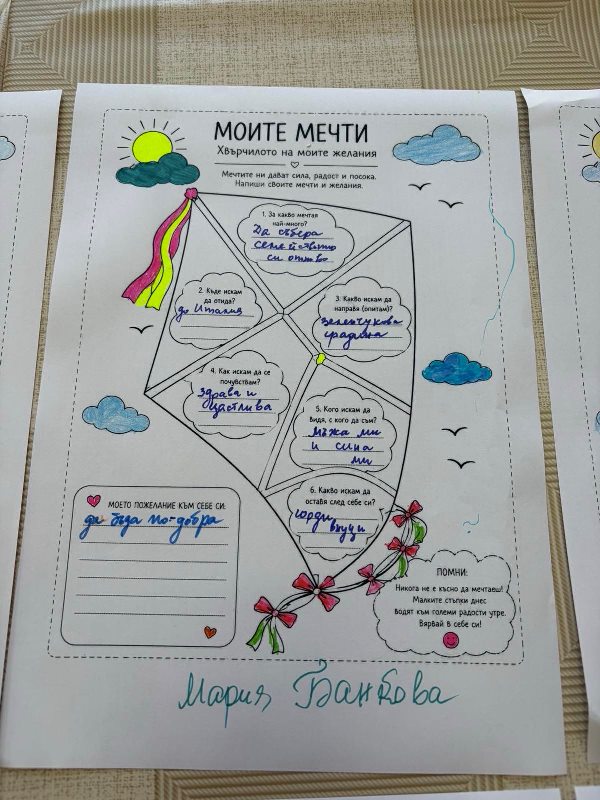 МОИТЕ МЕЧТИ
Хвърчилото на моите желания
Мечтите ни дават сила, радост и посока.
Напиши своите мечти и желания.
1. За какво мечтая
най-много?
Да събера
семейството
си отново
2. Къде искам
да отида?
до Италия
3. Какво искам да
направя (опитам)?
зеленчукова
градина
4. Как искам да се
почувствам?
здрава и
щастлива
5. Кого искам да
видя, с кого да съм?
мъжа ми
и сина
ми
6. Какво искам да
оставя след себе си?
горди
внуци
МОЕТО ПОЖЕЛАНИЕ КЪМ СЕБЕ СИ:
да бъда по-добра
ПОМНИ:
Никога не е късно да мечтаеш!
Малките стъпки днес
водят към големи радости утре.
Вярвай в себе си!
Мария Банкова